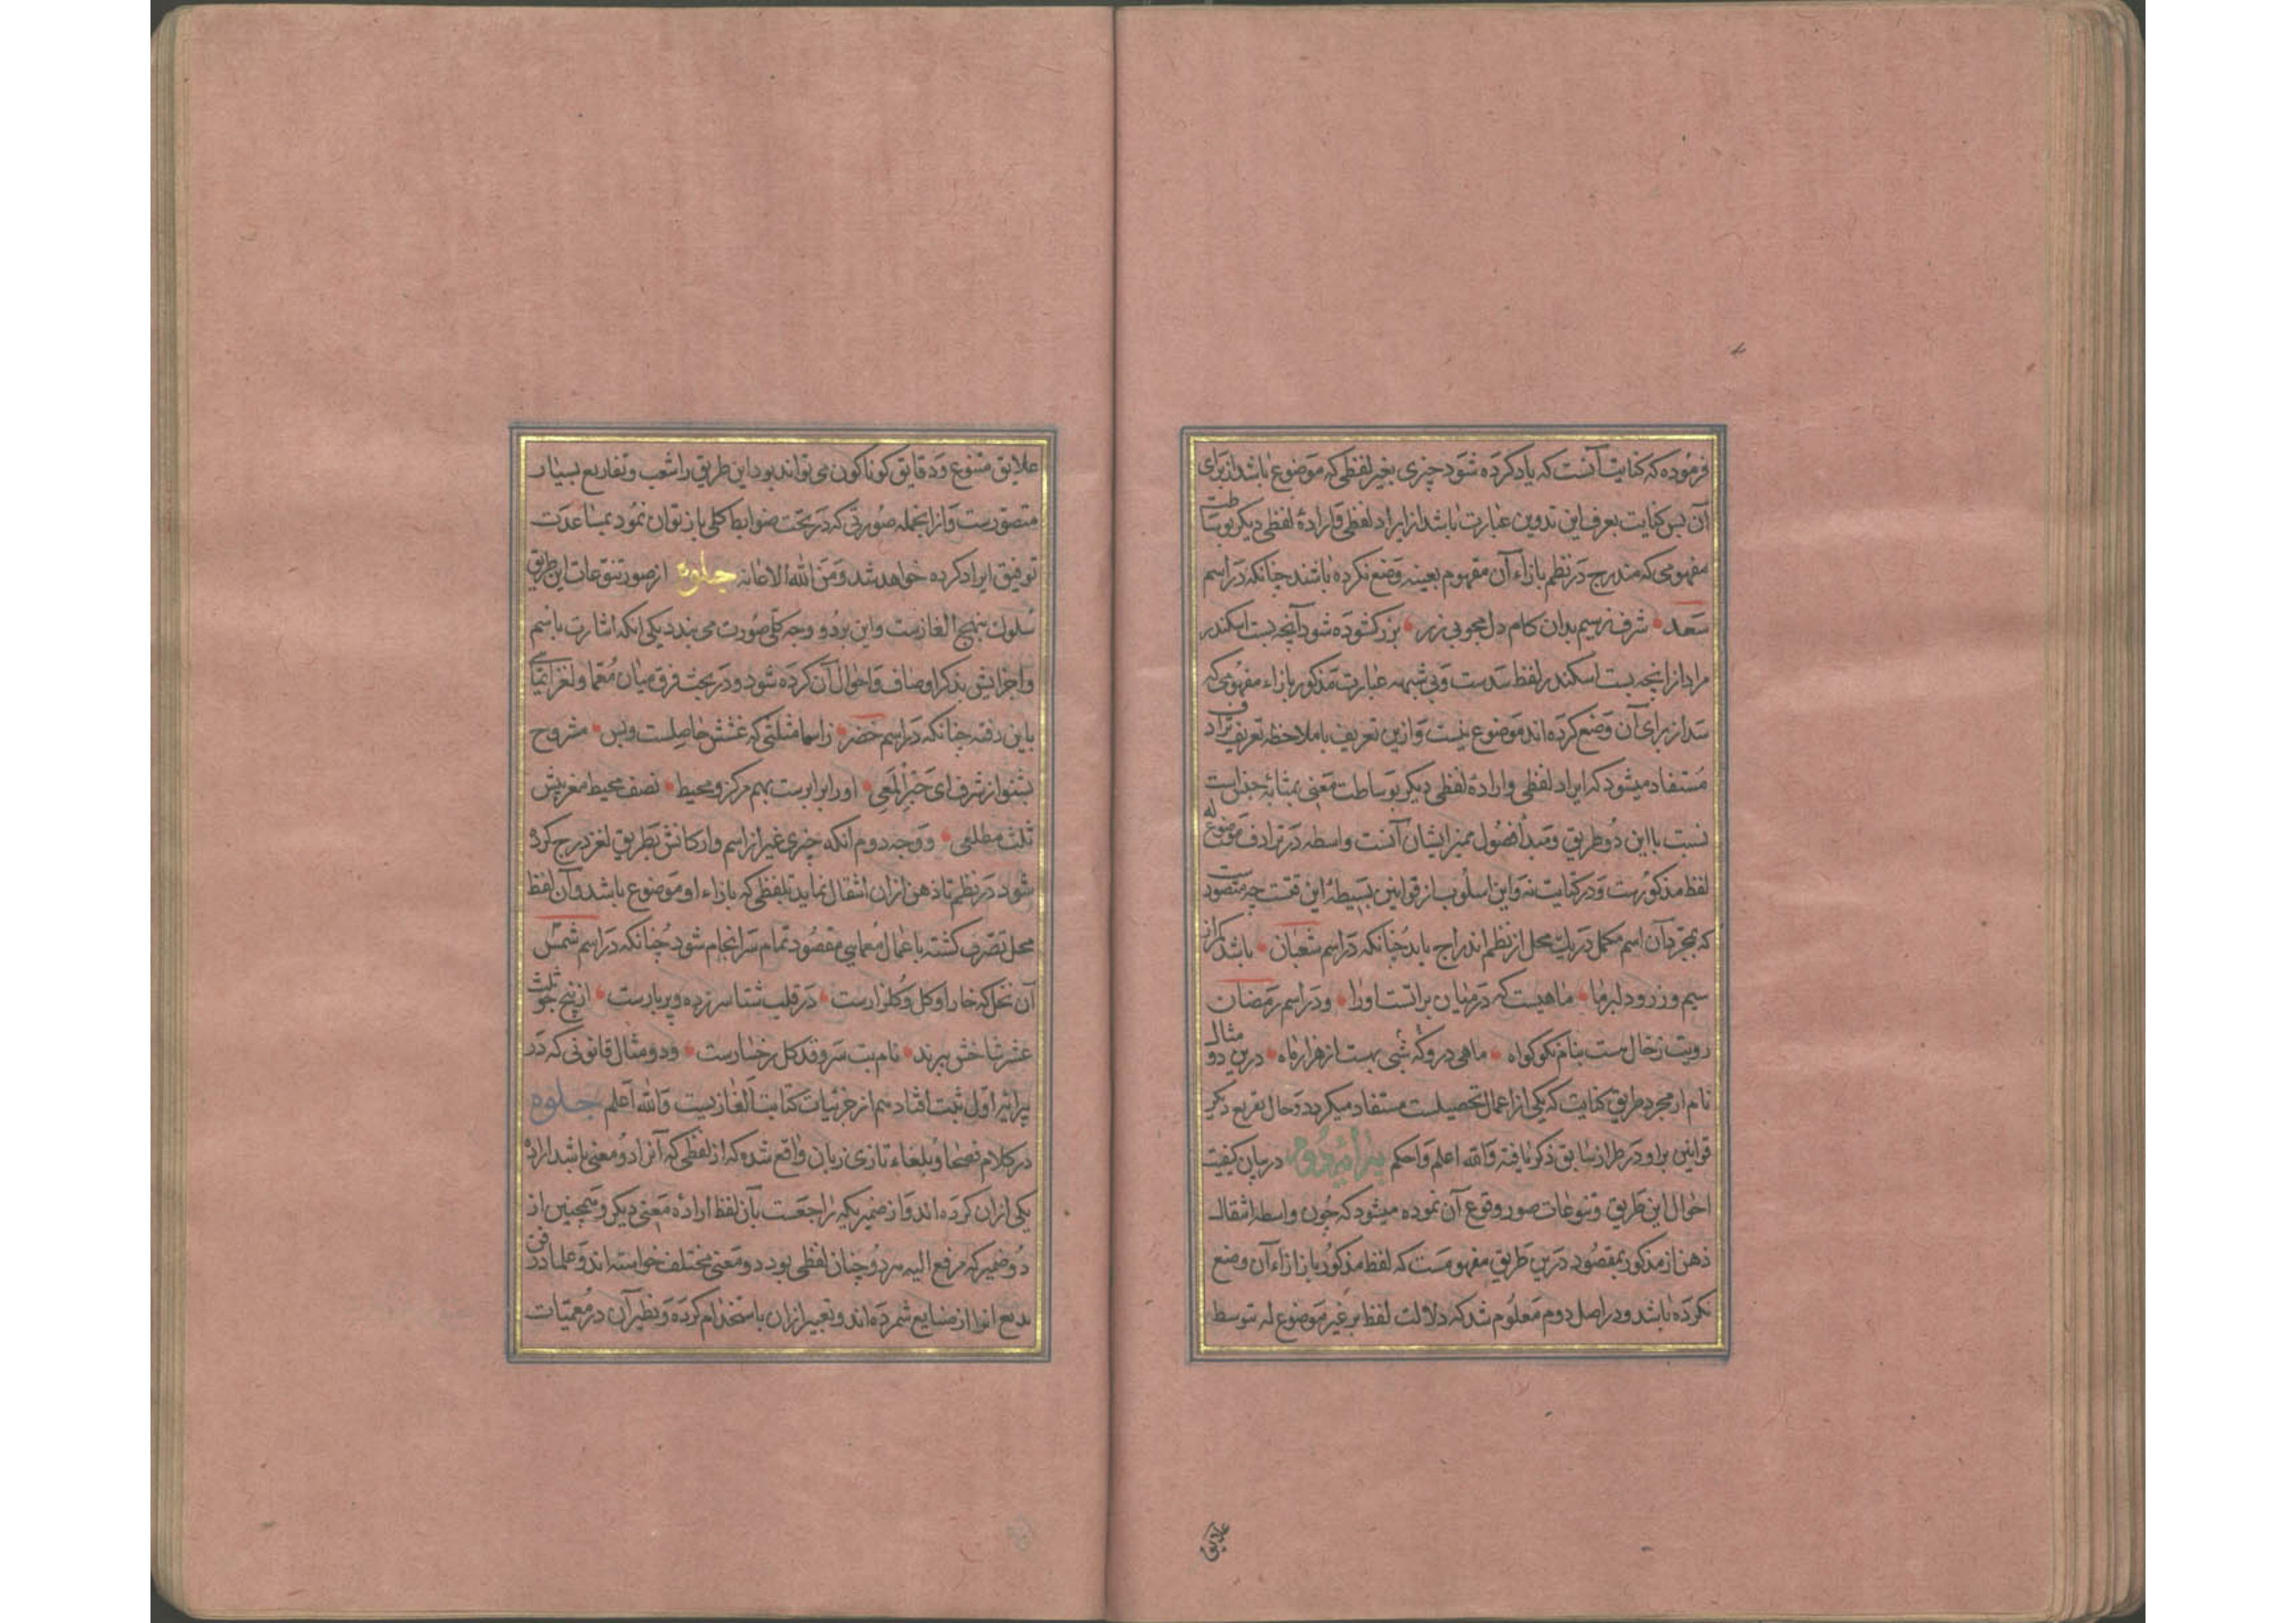 فرموده که کنایت آنست که یاد کرده شود چیزی بغیر لفظی که موضوع باشد از برای
آن پس کنایت بعرف این تدوین عبارت باشد از ایراد لفظی و ارادهٔ لفظی دیگر بوساطت
مفهومی که مندرج در نظم بازاء آن مفهوم بعینه وضع نکرده باشند چنانکه در اسم
سعد شرف ز سیم بدان کام دل مجو بی زر بزر کشوده شود آنچه بست اسکندر
مراد از آنچه بست اسکندر لفظ سدست و بی شبهه عبارت مذکور بازاء مفهومی که
سد از برای آن وضع کرده اند موضوع نیست و ازین تعریف با ملاحظه تعریف ترادف
مستفاد میشود که ایراد لفظی و ارادهٔ لفظی دیگر بوساطت معنی بمثابهٔ جنس است
نسبت با این دو طریق و مبدأ فصول ممیز ایشان آنست واسطه در ترادف موضوع له
لفظ مذکورست و در کنایت نه و این اسلوب از قوانین بسیطهٔ این فنست چه متصورست
که بمجرد آن اسم مکمل در یک محل از نظم اندراج یابد چنانکه در اسم شعبان باشد کرانه
سیم و زر و دلبر ما ماهیست که در میان براتست او را و در اسم رمضان
رویت ز خال هست بنام نکو کواه ماهی درو که شبی بهست از هزار ماه درین دو مثال
نام از مجرد طریق کنایت که یکی از اعمال تحصیلیست مستفاد میکردد و حال تفریع دیگر
قوانین برو در طراز سابق ذکر یافته و الله اعلم و احکم پیرایهٔ دوم در بیان کیفیت
احوال این طریق و تنوعات صور وقوع آن نموده میشود که چون واسطه انتقال
ذهن از مذکور بمقصود درین طریق مفهومست که لفظ مذکور بازاء آن وضع
نکرده باشد و در اصل دوم معلوم شد که دلالت لفظ بر غیر موضوع له بتوسط
علایق
علایق متنوع و دقایق کوناکون می تواند بود این طریق را شعب و تفاریع بسیار
متصورست و از آنجمله صورتی که در تحت ضوابط کلی باز توان نمود بمساعدت
توفیق ایراد کرده خواهد شد و من الله الاعانه جلوه از صور تنوعات این طریق
سلوک بنهج الغازست و این بر دو وجه کلی صورت می بندد یکی آنکه اشارت باسم
و اجزایش بذکر اوصاف و احوال آن کرده شود و در بحث فرق میان معما و لغز ایمایی
باین رفته چنانکه در اسم خضر ز اسما مثلثی که غشش حاصلست و بس مشروح
بشنو از شرف ای خبر المعی او را برابرست بهم مرکز و محیط نصف محیط مغربیش
ثلث مطلعی و وجه دوم آنکه چیزی غیر از اسم و ارکانش بطریق لغز درج کرده
شود در نظم تا ذهن از آن انتقال نماید بلفظی که بازاء او موضوع باشد و آن لفظ
محل تصرف کشته باعمال معمایی مقصود تمام سرانجام شود چنانکه در اسم شمس
آن نخل که خار او کل و کلزارست در قلب شتا سرزده و پربارست از پنج چو ثلث
عشر شاخش ببرند نام بت سرو قد کل رخسارست و دو مثال قانونی که در
پیرایهٔ اول ثبت افتاد هم از جزئیات کنایت الغازیست و الله اعلم جلوه
در کلام فصحا و بلغاء تازی زبان واقع شده که از لفظی که آنرا دو معنی باشد اراده
یکی از آن کرده اند و از ضمیری که راجعست بآن لفظ ارادهٔ معنی دیگر و همچنین از
دو ضمیر که مرجع الیه هر دو چنان لفظی بود دو معنی مختلف خواسته اند و علما در فن
بدیع آنرا از صنایع شمرده اند و تعبیر از آن باستخدام کرده و نظیر آن در معمیات